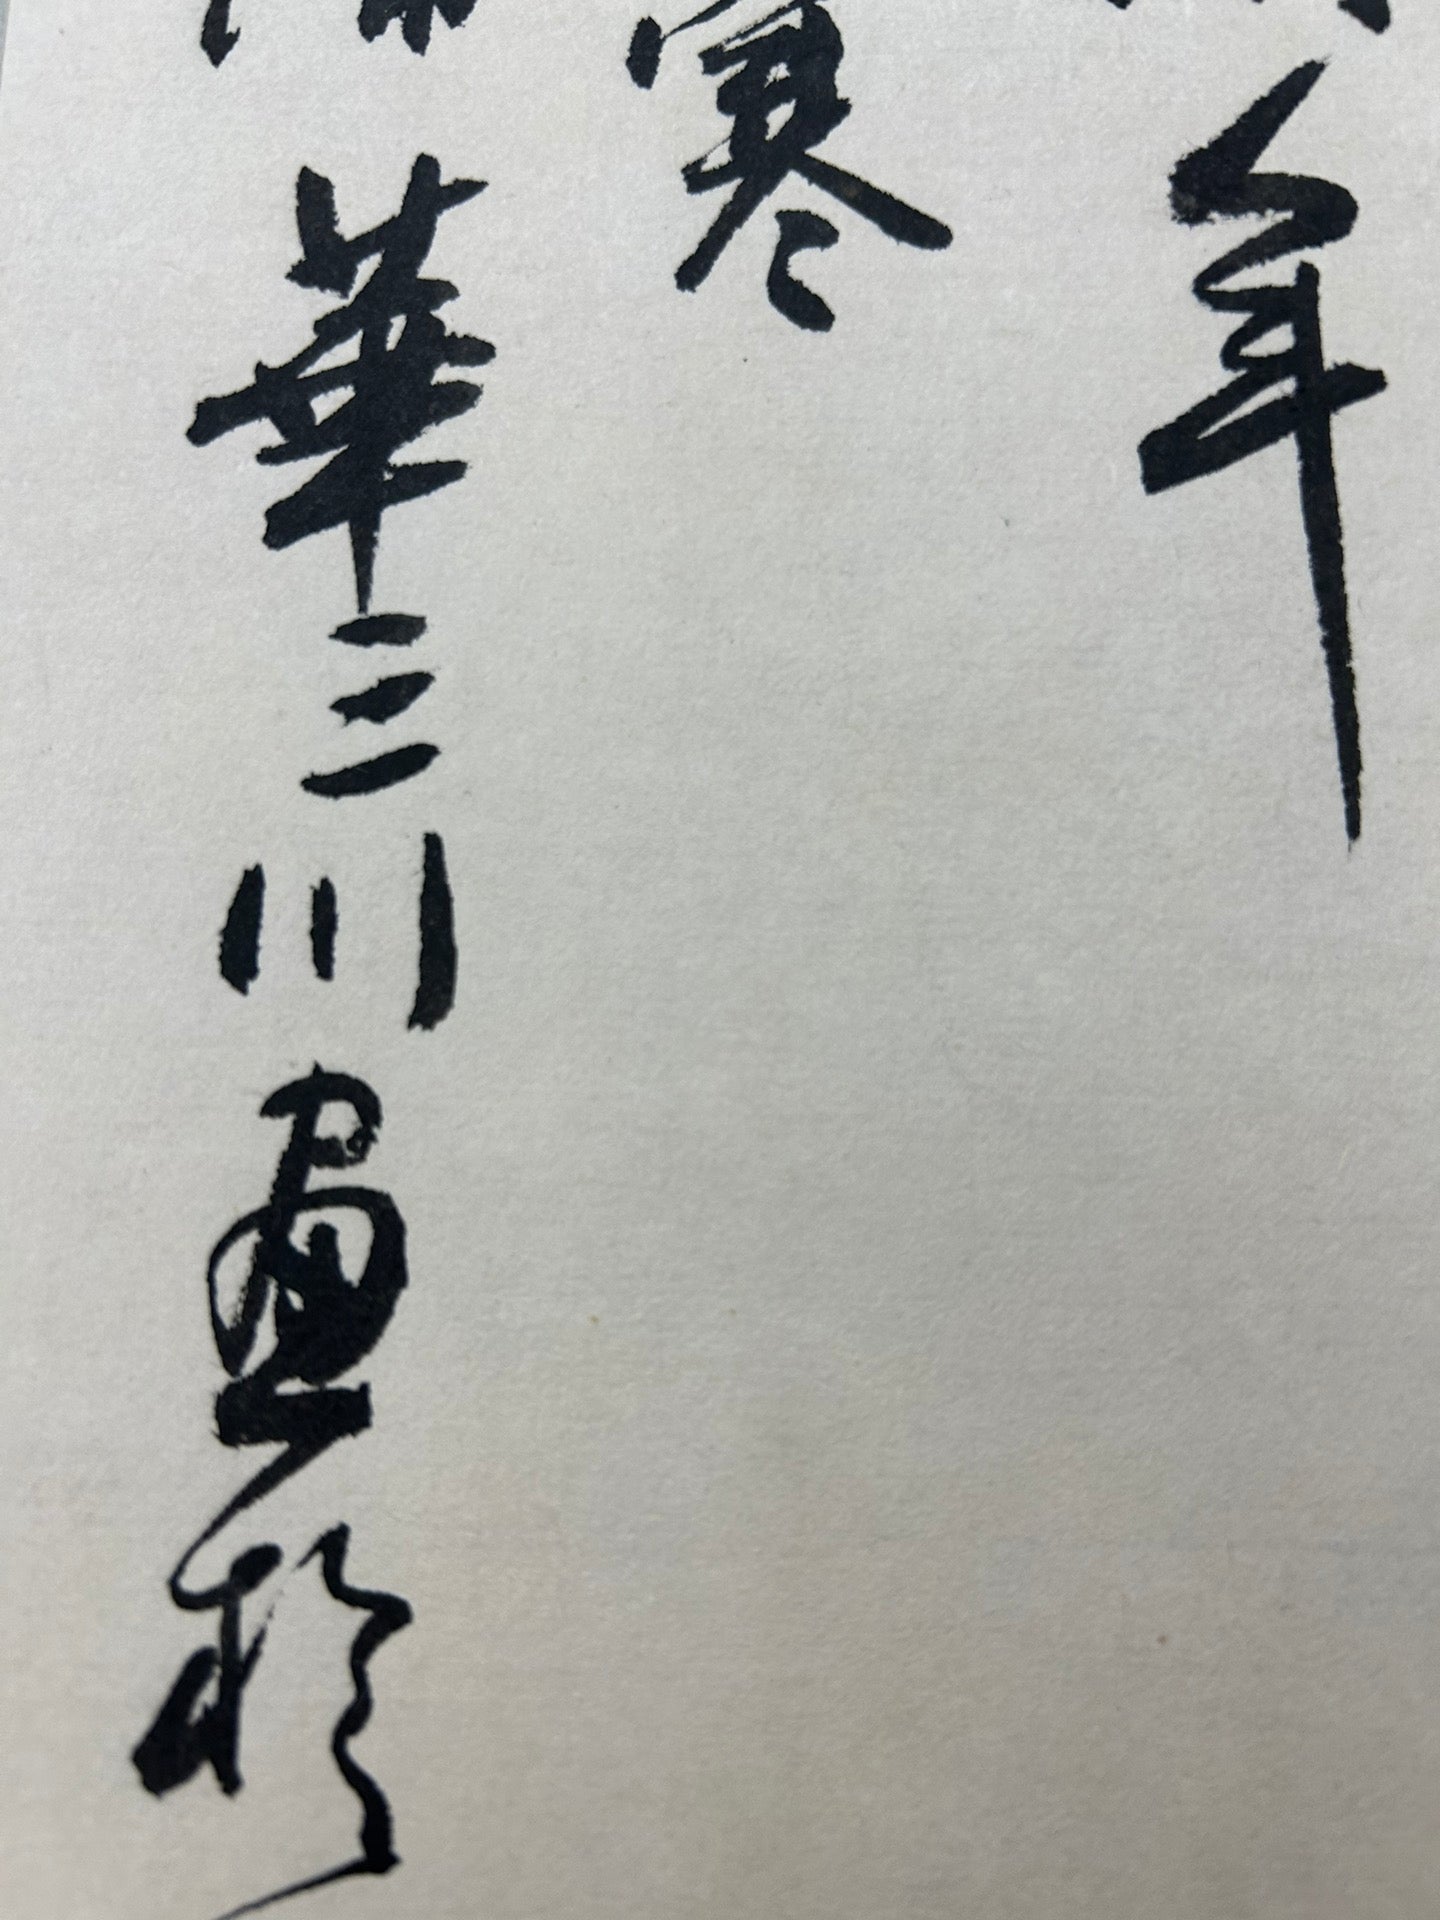 年
寒
華三川畫於